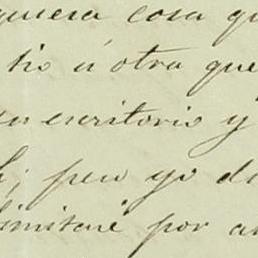 quiera cosa qu
tio ú otra que
su escritorio y
; pero yo d
limitaré por a